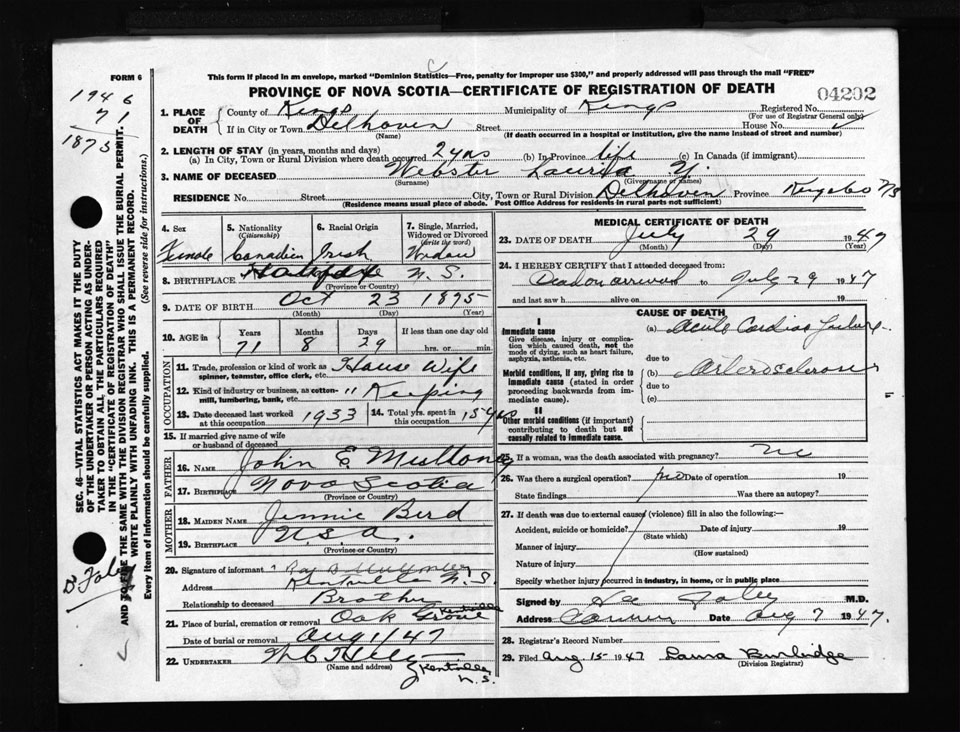 This form if placed in an envelope, marked "Dominion Statistics—Free, penalty for improper use $300," and properly addressed will pass through the mail "FREE"
FORM 6
PROVINCE OF NOVA SCOTIA—CERTIFICATE OF REGISTRATION OF DEATH
04202
1946
71
1875
1. PLACE OF DEATH
County of Kings Municipality of Kings Registered No.
(For use of Registrar General only)
If in City or Town Delhaven Street House No.
(Name) (If death occurred in a hospital or institution, give the name instead of street and number)
2. LENGTH OF STAY (in years, months and days)
(a) In City, Town or Rural Division where death occurred 2 yrs (b) In Province life (c) In Canada (if immigrant)
3. NAME OF DECEASED Webster Laurila Y.
(Surname) (Given name or names)
RESIDENCE No. Street City, Town or Rural Division Delhaven Province Kings Co NS
(Residence means usual place of abode. Post Office Address for residents in rural parts not sufficient)
4. Sex Female
5. Nationality (Citizenship) Canadian
6. Racial Origin Irish
7. Single, Married, Widowed or Divorced (Write the word) Widow
8. BIRTHPLACE Halifax N. S.
(Province or Country)
9. DATE OF BIRTH Oct 23 1875
(Month) (Day) (Year)
10. AGE in Years Months Days If less than one day old
71 8 29 hrs. or min.
OCCUPATION
11. Trade, profession or kind of work as spinner, teamster, office clerk, etc. House Wife
12. Kind of industry or business, as cotton-mill, lumbering, bank, etc. " Keeping
13. Date deceased last worked at this occupation 1933 14. Total yrs. spent in this occupation 15 yrs
15. If married give name of wife or husband of deceased
FATHER
16. NAME John E Mullowney
17. BIRTHPLACE Nova Scotia
(Province or Country)
MOTHER
18. MAIDEN NAME Jennie Bird
19. BIRTHPLACE U.S.A.
(Province or Country)
20. Signature of informant
Address Kentville N. S.
Relationship to deceased Brother
21. Place of burial, cremation or removal Oak Grove Kentville
Date of burial or removal Aug 1/47
22. UNDERTAKER
(Name and address) Kentville N.S.
MEDICAL CERTIFICATE OF DEATH
23. DATE OF DEATH July 29 1947
(Month) (Day) (Year)
24. I HEREBY CERTIFY that I attended deceased from:
Dead on arrival to July 29 1947
and last saw h alive on 19
CAUSE OF DEATH
I
Immediate cause (a) Acute Cardiac Failure
Give disease, injury or complication which caused death, not the mode of dying, such as heart failure, asphyxia, asthenia, etc.
due to
Morbid conditions, if any, giving rise to immediate cause (stated in order proceeding backwards from immediate cause). (b) Arterosclerous
due to
(c)
II
Other morbid conditions (if important) contributing to death but not causally related to immediate cause.
25. If a woman, was the death associated with pregnancy? No
26. Was there a surgical operation? no Date of operation 19
State findings Was there an autopsy?
27. If death was due to external causes (violence) fill in also the following:—
Accident, suicide or homicide? Date of injury 19
(State which)
Manner of injury
(How sustained)
Nature of injury
Specify whether injury occurred in industry, in home, or in public place
Signed by Foley M.D.
Address Canning Date Aug 7 1947
28. Registrar's Record Number
29. Filed Aug. 15 1947 Laura Burbidge
(Division Registrar)
SEC. 46—VITAL STATISTICS ACT MAKES IT THE DUTY OF THE UNDERTAKER OR PERSON ACTING AS UNDERTAKER TO OBTAIN ALL THE PARTICULARS REQUIRED IN THE "CERTIFICATE OF REGISTRATION OF DEATH" AND TO FILE THE SAME WITH THE DIVISION REGISTRAR WHO SHALL ISSUE THE BURIAL PERMIT.
WRITE PLAINLY WITH UNFADING INK. THIS IS A PERMANENT RECORD.
Every item of information should be carefully supplied. (See reverse side for instructions.)
B Foley